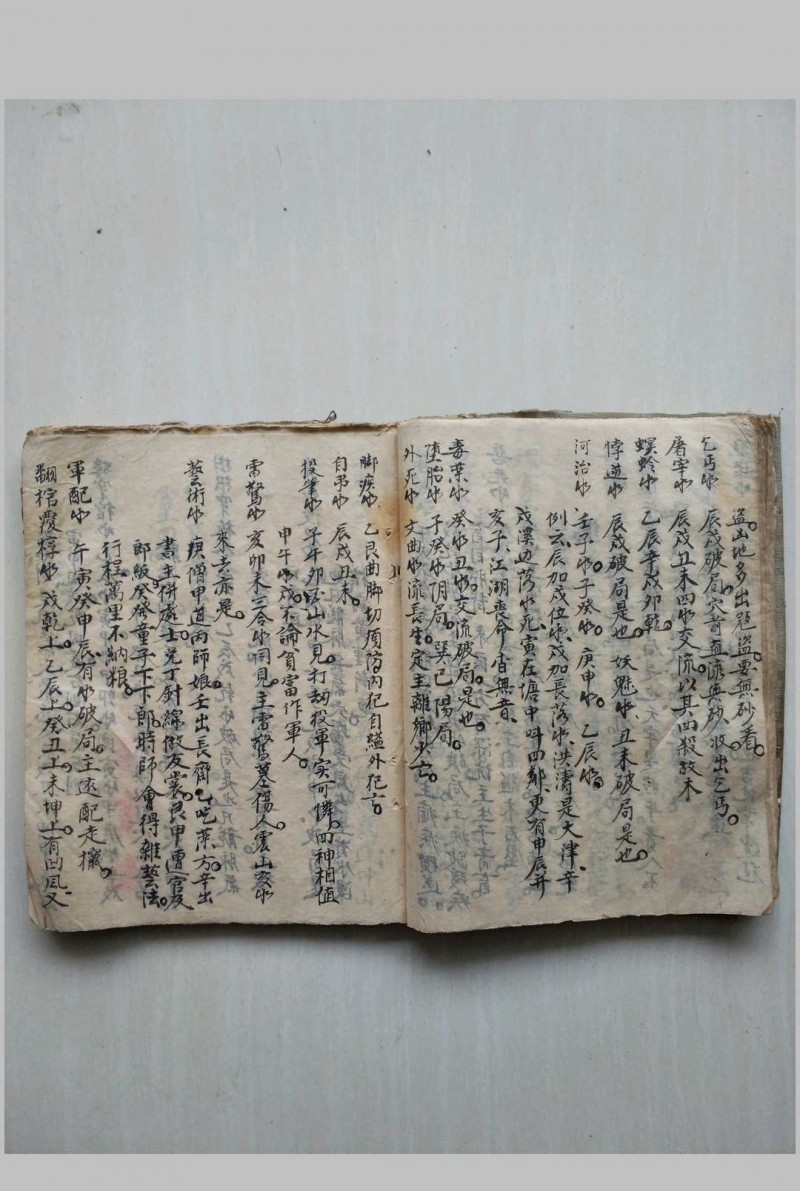 盗山地多出賊盗要無砂看。
乞丐水 辰戌破局穴前直流無砂收出乞丐。
屠宰水 辰戌丑未四水交流以其四殺故木
螟蛉水 乙辰辛戌卯乾。
悖逆水 辰戌破局是也。妖魁水。丑未破局是也。
河治水 壬子水。子癸水。庚申水。乙辰水。
例云辰加戌位水。戌加長落水。洪濤是大津辛
戌溪边落水死寅在塘中叫四鄰更有甲辰并
亥子。江湖喪命杳無音。
毒藥水 癸水丑水。交流破局。是也。
堕胎水 子癸水。阴局。巽巳陽局。
外死水 文曲水流長生。定主離鄉火亡。
脚疾水 乙艮曲脚切須防内犯自縊外犯亡。
自吊水 辰戌丑未。
投軍水 子午卯酉山水見。打劫投軍实可憐。四神相值
甲午水。戌不論貧富作軍人。
雷驚水 亥卯未三合水同見。主雷驚墓傷人震山亥水
來去亦忌。
藝術水 庚僧甲道丙師娘壬出長齋乙吃菜方。辛出
書主併處士。兑丁針線做衣裳。艮甲
郎級癸癸童子下下郎時師會得雜藝法。
行程萬里不納粮。
軍配水 午寅癸申辰有水破局。主遠配走
翻棺覆椁水 戌乾上。乙辰上。癸丑上。未坤上。有凶風又